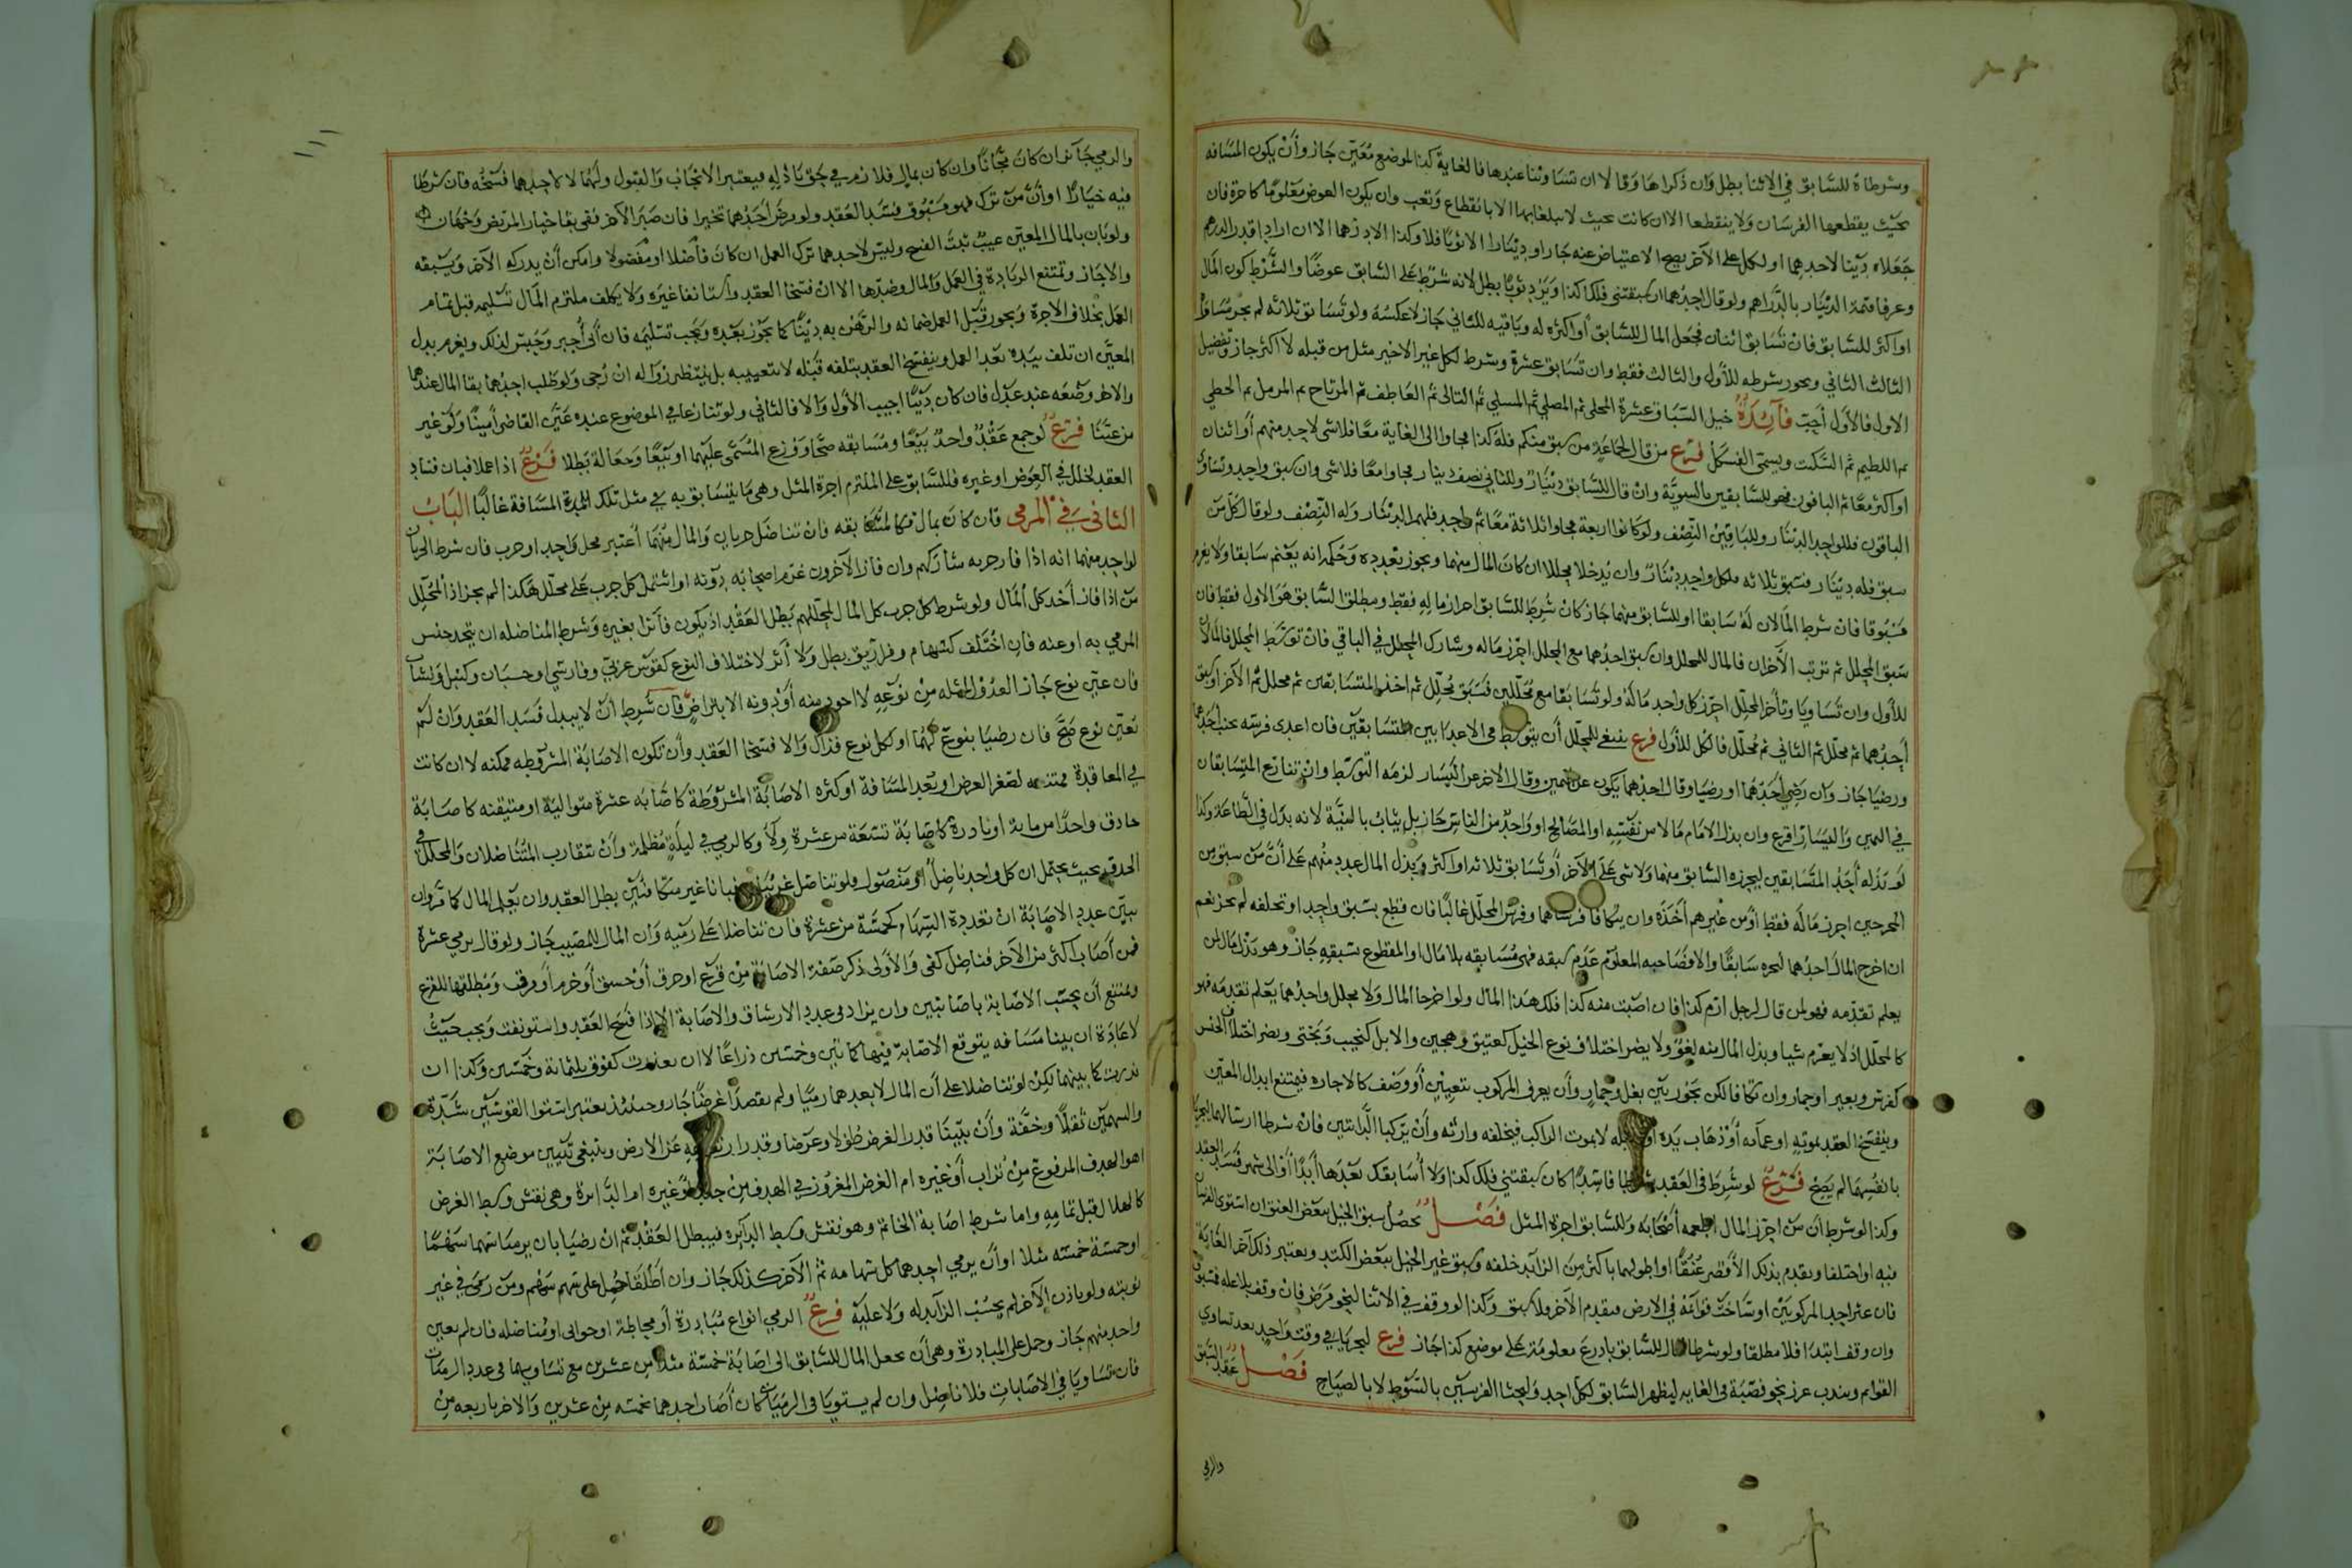 وشرطاه للسابق في الاثنا بطل وان ذكراها وقالا ان تساوتنا عندها فالغاية كذا لموضع معين جاز وأن يكون المسافه
بحيث يقطعها الفرسان ولا ينقطعا الا ان كانت بحيث لا يبلغانها الا بانقطاع وتعب وان يكون العوض معلوما كاجرة فان
جعلاه دينا لاحدهما او لكل على الآخر يصح الاعتياض عنه جاز او دينارا الا ثوبا فلا وكذا الا درهما الا ان ارادا قدر الدرهم
وعرفا قيمة الدينار بالدراهم ولو قال احدهما ان سبقتني فلك كذا وترد ثوبا بطل لانه شرط على السابق عوضا والشرط كون المال
او اكثر للسابق فان تسابق اثنان فجعل المال للسابق أو اكثره له وباقيه للثاني جاز لا عكسه ولو تسابق ثلاثه لم يجز مساواة
الثالث الثاني ويجوز شرطه للأول والثالث فقط وان تسابق عشرة وشرط لكل غير الاخير مثل من قبله لا اكثر جاز وتفضيل
الاول فالأول أحب فائدة خيل السباق عشرة المجلي ثم المصلي ثم المسلي ثم التالي ثم العاطف ثم المرتاح ثم المرمل ثم الحظي
ثم اللطيم ثم السكيت ويسمى الفسكل فرع من قال لجماعة من سبق منكم فله كذا فجاوا الى الغاية معا فلا شي لاحد منهم أو اثنان
او أكثر معا ثم الباقون فهو للسابقين بالسوية وان قال للسابق دينار وللثاني نصف دينار فجاوا معا فلا شي وان سبق واحد وتساوى
الباقون فللواحد الدينار وللباقين النصف ولو كانوا اربعة فجاوا ثلاثة معا ثم واحد فلهم الدينار وله النصف ولو قال كل من
سبق فله دينار فسبق ثلاثه فلكل واحد دينار وان يدخلا محللا ان كان المال منهما ويجوز تعدده وحكمه انه يغنم سابقا ولا يغرم
مسبوقا فان شرط المالان له سابقا او للسابق منهما جاز كان شرط للسابق احراز ماله فقط ومطلق السابق هو الاول فقط فان
سبق المحلل ثم ترتب الآخران فالمال للمحلل وان سبق احدهما مع المحلل احرز ماله وشارك المحلل في الباقي فان توسط المحلل فالمالان
للأول وان تساويا وتأخر المحلل احرز كل واحد ماله ولو تسابقا مع محللين فسبق محلل ثم احد المتسابقين ثم محلل ثم الآخر او سبق
أحدهما ثم محلل ثم الثاني ثم محلل فالكل للأول فرع ينبغي للمحلل أن يتوسط في الاعدا بين المتسابقين فان اعدى فرسه بجنب احدهما
ورضيا جاز وان رضي أحدهما او رضيا وقال احدهما يكون عن اليمين وقال الاخر عن اليسار لزمه التوسط وان تنازع المتسابقان
في اليمين واليسار اقرع وان بذل الامام مالا من نفسه او المصالح او واحد من الناس جاز بل يثاب بالنية لانه بذل في الطاعة وكذا
لو بذله أحد المتسابقين ليحرزه السابق منهما ولا شي على الآخر أو تسابق ثلاثه او اكثر وبذل المال عدد منهم على أن من سبق من
المخرجين احرز ماله فقط او من غيرهم أخذه وان يتكافا فرساهما وفرس المحلل غالبا فان قطع بسبق واحد او تخلفه لم يجز نعم
ان اخرج المال احدهما ليحرزه سابقا والا فصاحبه المعلوم عدم سبقه فهي مسابقه بلا مال او المقطوع بسبقه جاز وهو بذل مال لمن
يعلم تقدمه فهو لمن قال لرجل ارم كذا فان اصبت منه كذا فلك هذا المال ولو اخرجا المال ولا محلل واحدهما يعلم تقدمه فهو
كالمحلل اذ لا يغرم شيا وبذل المال منه لغو ولا يضر اختلاف نوع الخيل كعتيق وهجين والابل كنجيب وبختي ويضر اختلاف الجنس
كفرس وبعير او حمار وان تكافا لكن يجوز بين بغل وحمار وأن يعرف المركوب بتعيين أو وصف كالاجاره فيمتنع ابدال المعين
وينفسخ العقد بموته او عماه أو ذهاب يده او لا بموت الراكب فيخلفه وارثه وأن يركبا الدابتين فان شرطا ارسالهما ليجريا
بانفسهما لم يصح فرع لو شرط في العقد شرطا فاسدا كان سبقتني فلك كذا ولا أسابقك بعدها أبدا أو الى شهر فسد العقد
وكذا لو شرط أن من احرز المال اطعمه أصحابه وللسابق اجرة المثل فصل يحصل سبق الخيل ببعض العنق ان استوى الفرسان
فيه او اختلفا وتقدم بذلك الأقصر عنقا او اطولهما باكثر من الزائد خلقه وسبق غير الخيل ببعض الكتد ويعتبر ذلك آخر الغاية
فان عثر احد المركوبين او ساخت قوائمه في الارض فتقدم الآخر فلا سبق وكذا لو وقف في الاثنا لنحو مرض فان وقف بلا عله فمسبوق
وان وقف ابتدا فلا مطلقا ولو شرطا المال للسابق باذرع معلومة على موضع كذا جاز فرع ليجريا في وقت واحد بعد تساوي
القوائم ويندب غرز نحو قصبة في الغايه ليظهر السابق لكل احد وليحثا الفرسين بالسوط لا بالصياح فصل عقد السبق
والرمي
والرمي جائز ان كان مجانا وان كان بمال فلازم في حق باذله فيعتبر الايجاب والقبول ولهما لا لاحدهما فسخه فان شرطا
فيه خيارا او أن من ترك فهو مسبوق فسد العقد ولو مرض أحدهما تخيرا فان صبر الآخر ففي بقا خيار المريض وجهان
ولو بان بالمال المعين عيب ثبت الفسخ وليس لاحدهما ترك العمل ان كان فاضلا او مفضولا وامكن أن يدركه الآخر ويسبقه
والا جاز وتمتنع الزيادة في العمل والمال وضدها الا ان فسخا العقد واستانفا غيره ولا يكلف ملتزم المال تسليمه قبل تمام
العمل بخلاف الاجرة ويجوز قبل العمل ضمانه والرهن به دينا كما يجوز بعده ويجب تسليمه فان أبى أجبر وحبس لذلك ويغرم بدل
المعين ان تلف بيده بعد العمل وينفسخ العقد بتلفه قبله لا بتعييبه بل ينتظر زواله ان رجي ولو طلب احدهما بقا المال عندهما
والاخر وضعه عند عدل فان كان دينا اجيب الأول والا فالثاني ولو تنازعا في الموضوع عنده عين القاضي أمينا ولو غير
من عينا فرع لو جمع عقد واحد بيعا ومسابقه صحا ووزع المسمى عليهما او بيعا وجعالة بطلا فرع اذا عملا فبان فساد
العقد لخلل في العوض او غيره فللسابق على الملتزم اجرة المثل وهي ما يتسابق به في مثل تلك المسافة غالبا الباب
الثاني في المرمى فان كان بمال فكالمسابقه فان تناضل حزبان والمال منهما أعتبر محلل واحد او حزب فان شرط الحزبان
لواحد منهما انه اذا فاز حزبه شاركهم وان فاز الآخرون غرم اصحابه دونه او اشتمل كل حزب على محلل هكذا لم يجز اذ المحلل
من اذا فاز أخذ كل المال ولو شرط كل حزب كل المال لمحللهم بطل العقد اذ يكون فائزا بغيره وشرط المناضله ان يتحد جنس
المرمي به او عنه فان اختلف كسهام ومزاريق بطل ولا أثر لاختلاف النوع كقوس عربي وفارسي او حسبان وكنبل ونشاب
فان عين نوع جاز العدول لمثله من نوعه لا اجود منه أو دونه الا بتراض فان شرط ان لا يبدل فسد العقد وان لم
يعين نوع صح فان رضيا بنوع لهما او لكل نوع فذاك والا فسخا العقد وأن تكون الاصابة المشروطه ممكنه لا ان كانت
في العاقدة ممتنعه لصغر الغرض او بعد المسافة او كثرة الاصابة المشروطة كاصابه عشرة متوالية او متيقنه كاصابة
حاذق واحدا من مائة او نادرة كاصابة تسعة من عشرة ولا وكالرمي في ليلة مظلمة وأن يتقارب المتناضلان والمحلل في
الحذق بحيث يحتمل ان كل واحد ناضل أو منضول ولو تناضل غريبان فبانا غير متكافئين بطل العقد وان يعلم المال كما مر وان
يبين عدد الاصابة ان تعددت السهام كخمسة من عشرة فان تناضلا على رميه وان المال للمصيب جاز ولو قال نرمي عشرة
فمن أصاب اكثر من الآخر فناضل كفى والأولى ذكر صفة الاصابة من قرع او خرق أو خسق أو خرم أو مرق ومطلقها للقرع
ويمتنع أن يحسب الاصابة باصابتين وان يزاد في عدد الارشاق والاصابة الا اذا فسخ العقد واستونفت ويجب حيث
لا عادة ان يبينا مسافه يتوقع الاصابة فيها كمائتين وخمسين ذراعا لا ان بعدت كفوق ثلثمائة وخمسين وكذا ان
ندرت كما بينهما لكن لو تناضلا على أن المال لابعدهما رميا ولم يقصدا غرضا جاز وحينئذ يعتبر استوا القوسين شدة
والسهمين ثقلا وخفة وأن يبينا قدر الغرض طولا وعرضا وقدر ارتفاعه عن الارض وينبغي تبيين موضع الاصابة
اهو الهدف المرفوع من تراب أو غيره ام الغرض المغروز في الهدف من جلد أو غيره ام الدائرة وهي نقش وسط الغرض
كالهلال قبل تمامه واما شرط اصابة الخاتم وهو نقش وسط الدائره فيبطل العقد ثم ان رضيا بان يرميا سهما سهما
او خمسة خمسه مثلا او أن يرمي احدهما كل سهامه ثم الآخر كذلك جاز وان أطلقا حمل على سهم سهم ومن رمى في غير
نوبته ولو باذن الآخر لم يحسب الزائد له ولا عليه فرع الرمي انواع مبادرة أو محاطة او حوابي او مناضله فان لم يعين
واحد منهم جاز وحمل على المبادرة وهي أن يجعل المال للسابق الى اصابة خمسة مثلا من عشرين مع تساويهما في عدد الرميات
فان تساويا في الاصابات فلا ناضل وان لم يستويا في الرميات كان أصاب احدهما خمسه من عشرين والاخر باربعه من